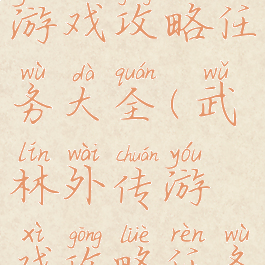 游戏攻略任
wù dà quán wǔ
务大全(武
lín wài chuán yóu
林外传游
xì gōng lüè rèn wù
戏攻略任务